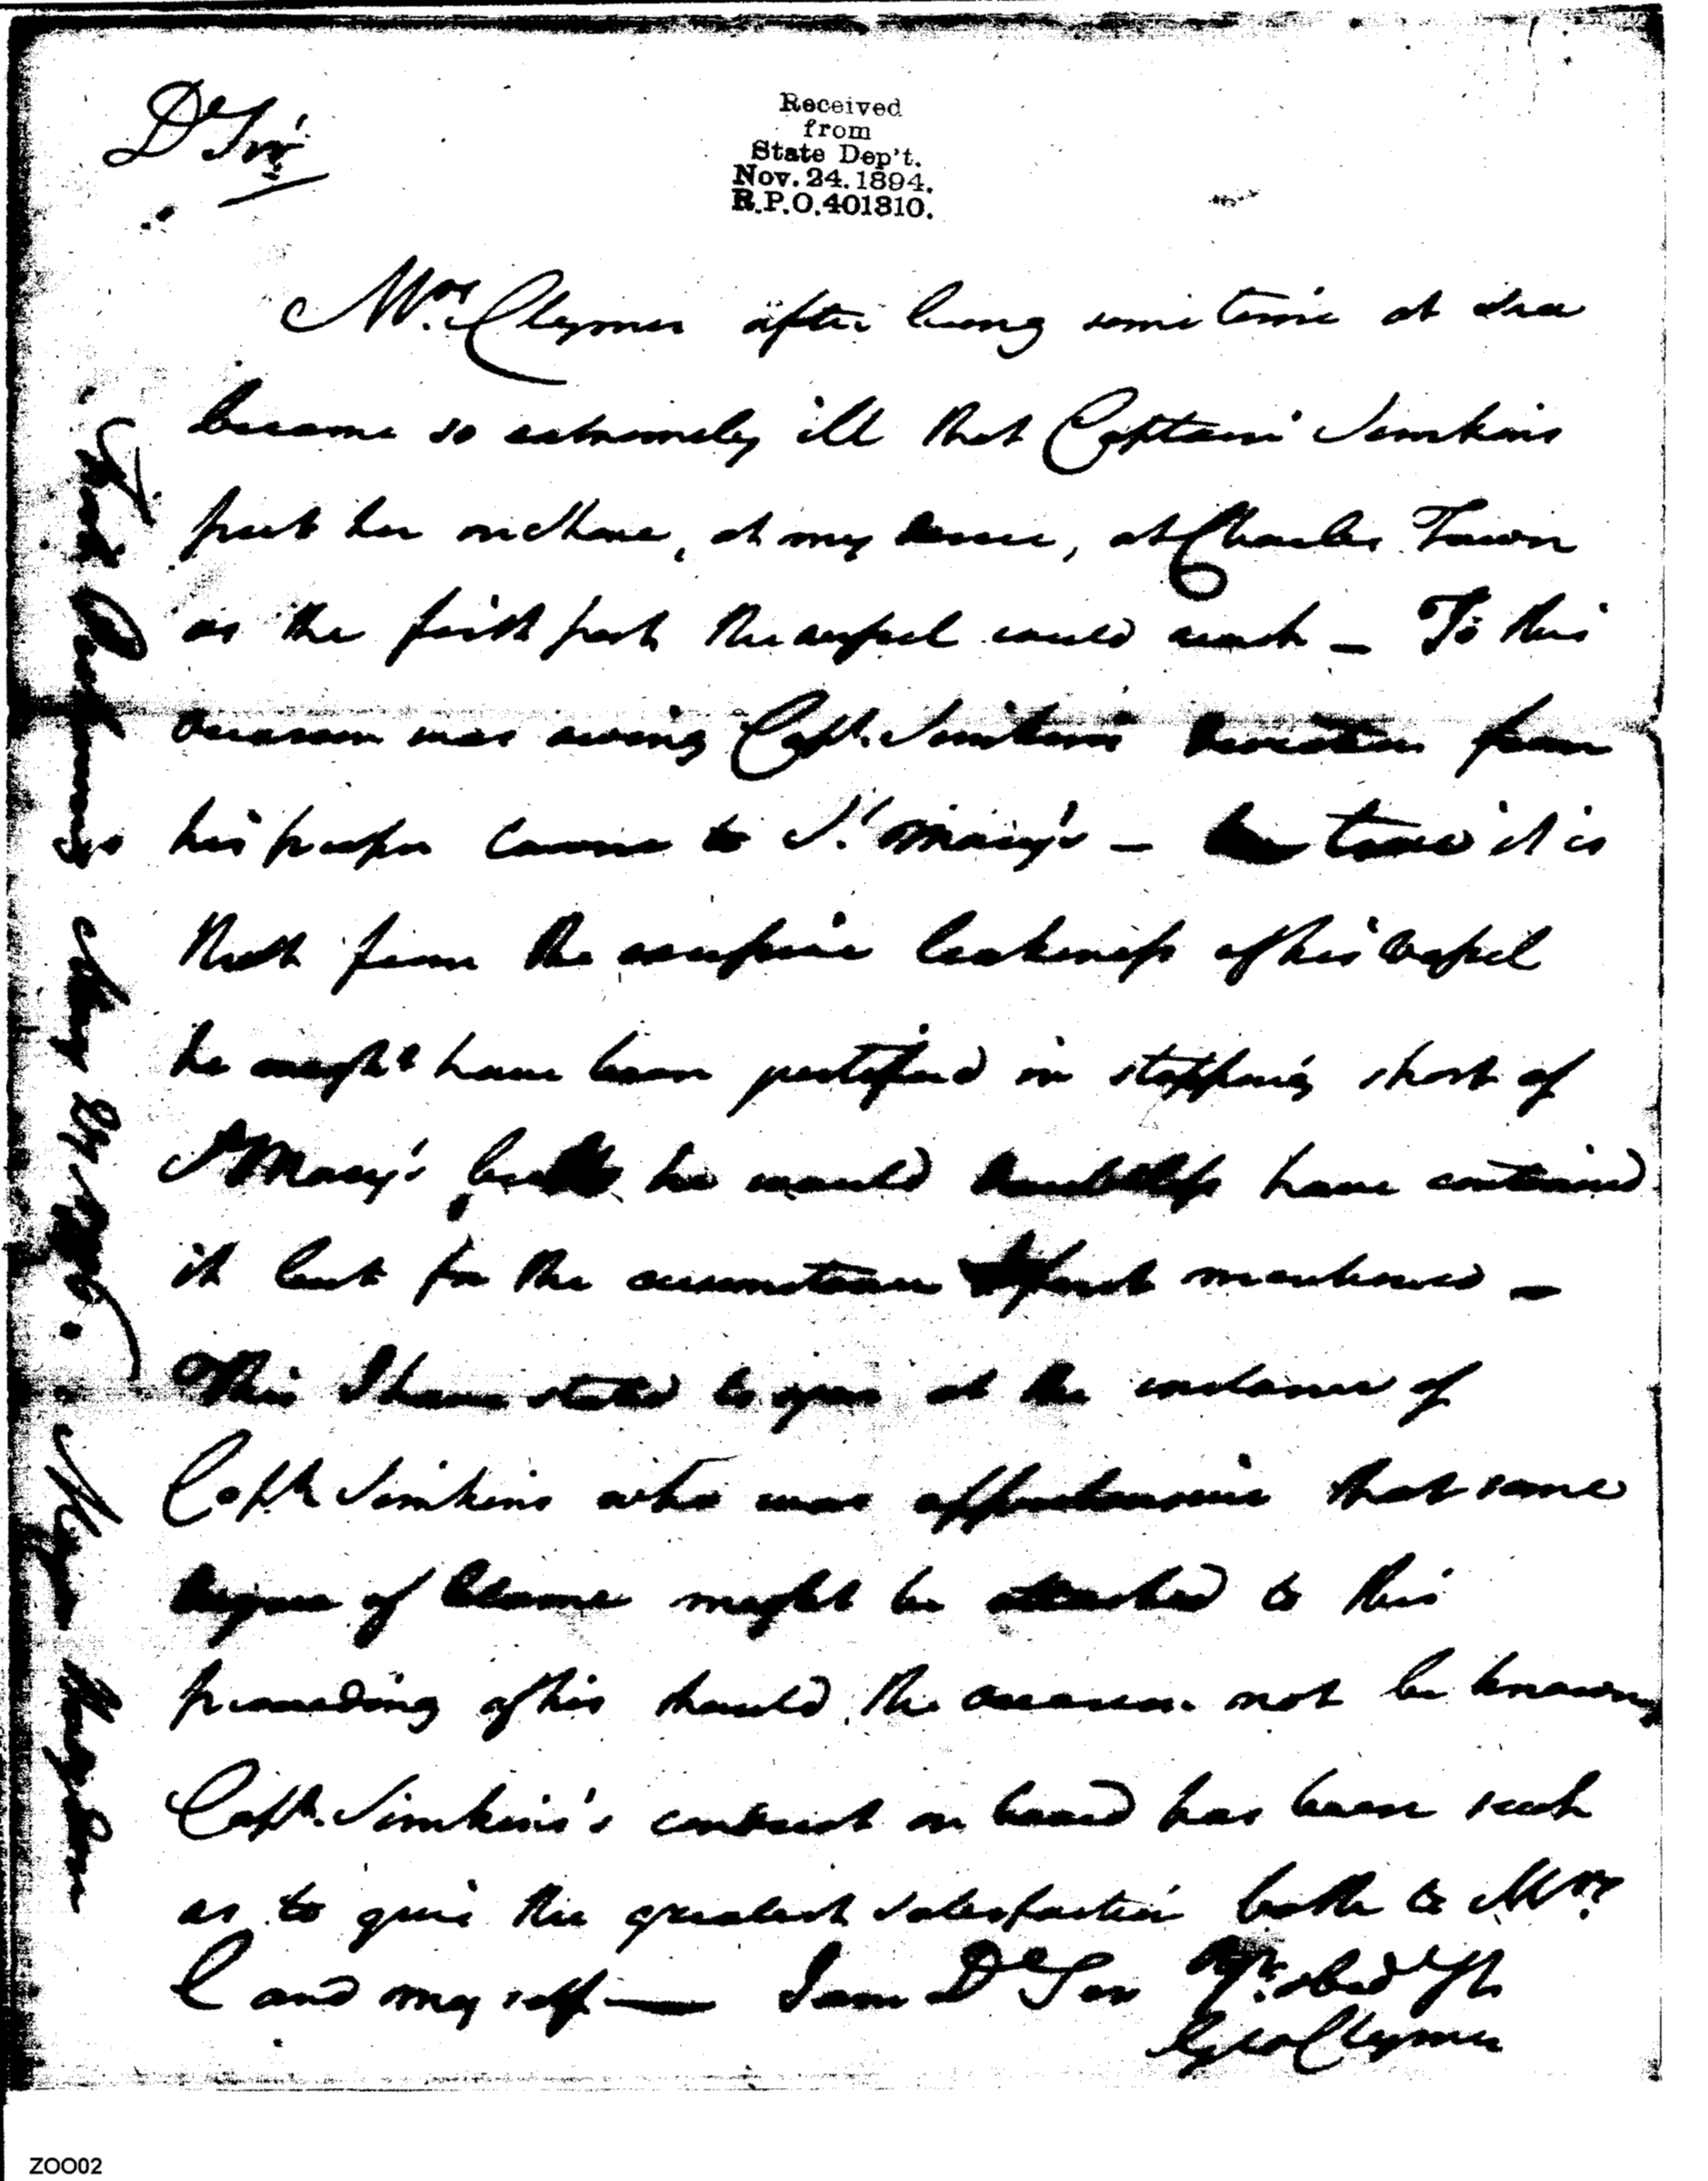 Dr Sir
Received
from
State Dep't.
Nov. 24. 1894.
R.P.O. 401310.
Mrs. Clymer after being some time at Sea
became so extremely ill that Captain Simkins
put her on Shore, at my desire, at Charles Town
as the first port the vessel could reach — To this
occasion was owing Capt. Simkins deviation from
his proper course to St. Mary's — true it is
that from the excessive leakeness of his vessel
he might have been justified in stopping short of
St Mary's but he would doubtless have continued
it but for the circumstance first mentioned —
This I have stated to you at the instance of
Capt Simkins who was apprehensive that some
degree of blame might be attached to this
proceeding of his should the occasion not be known,
Capt. Simkins's conduct on board has been such
as to give the greatest satisfaction both to Mrs.
C and myself — I am Dr Sir Yr. obed St
Geo Clymer
ZOO02